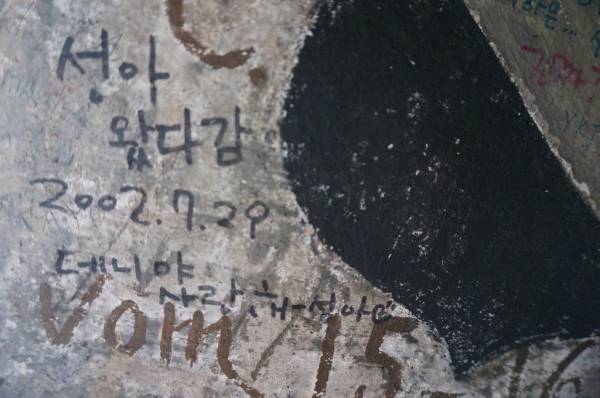 성아
왔다감
2002.7.29
데니야
사랑해-성아가
Vom 15.